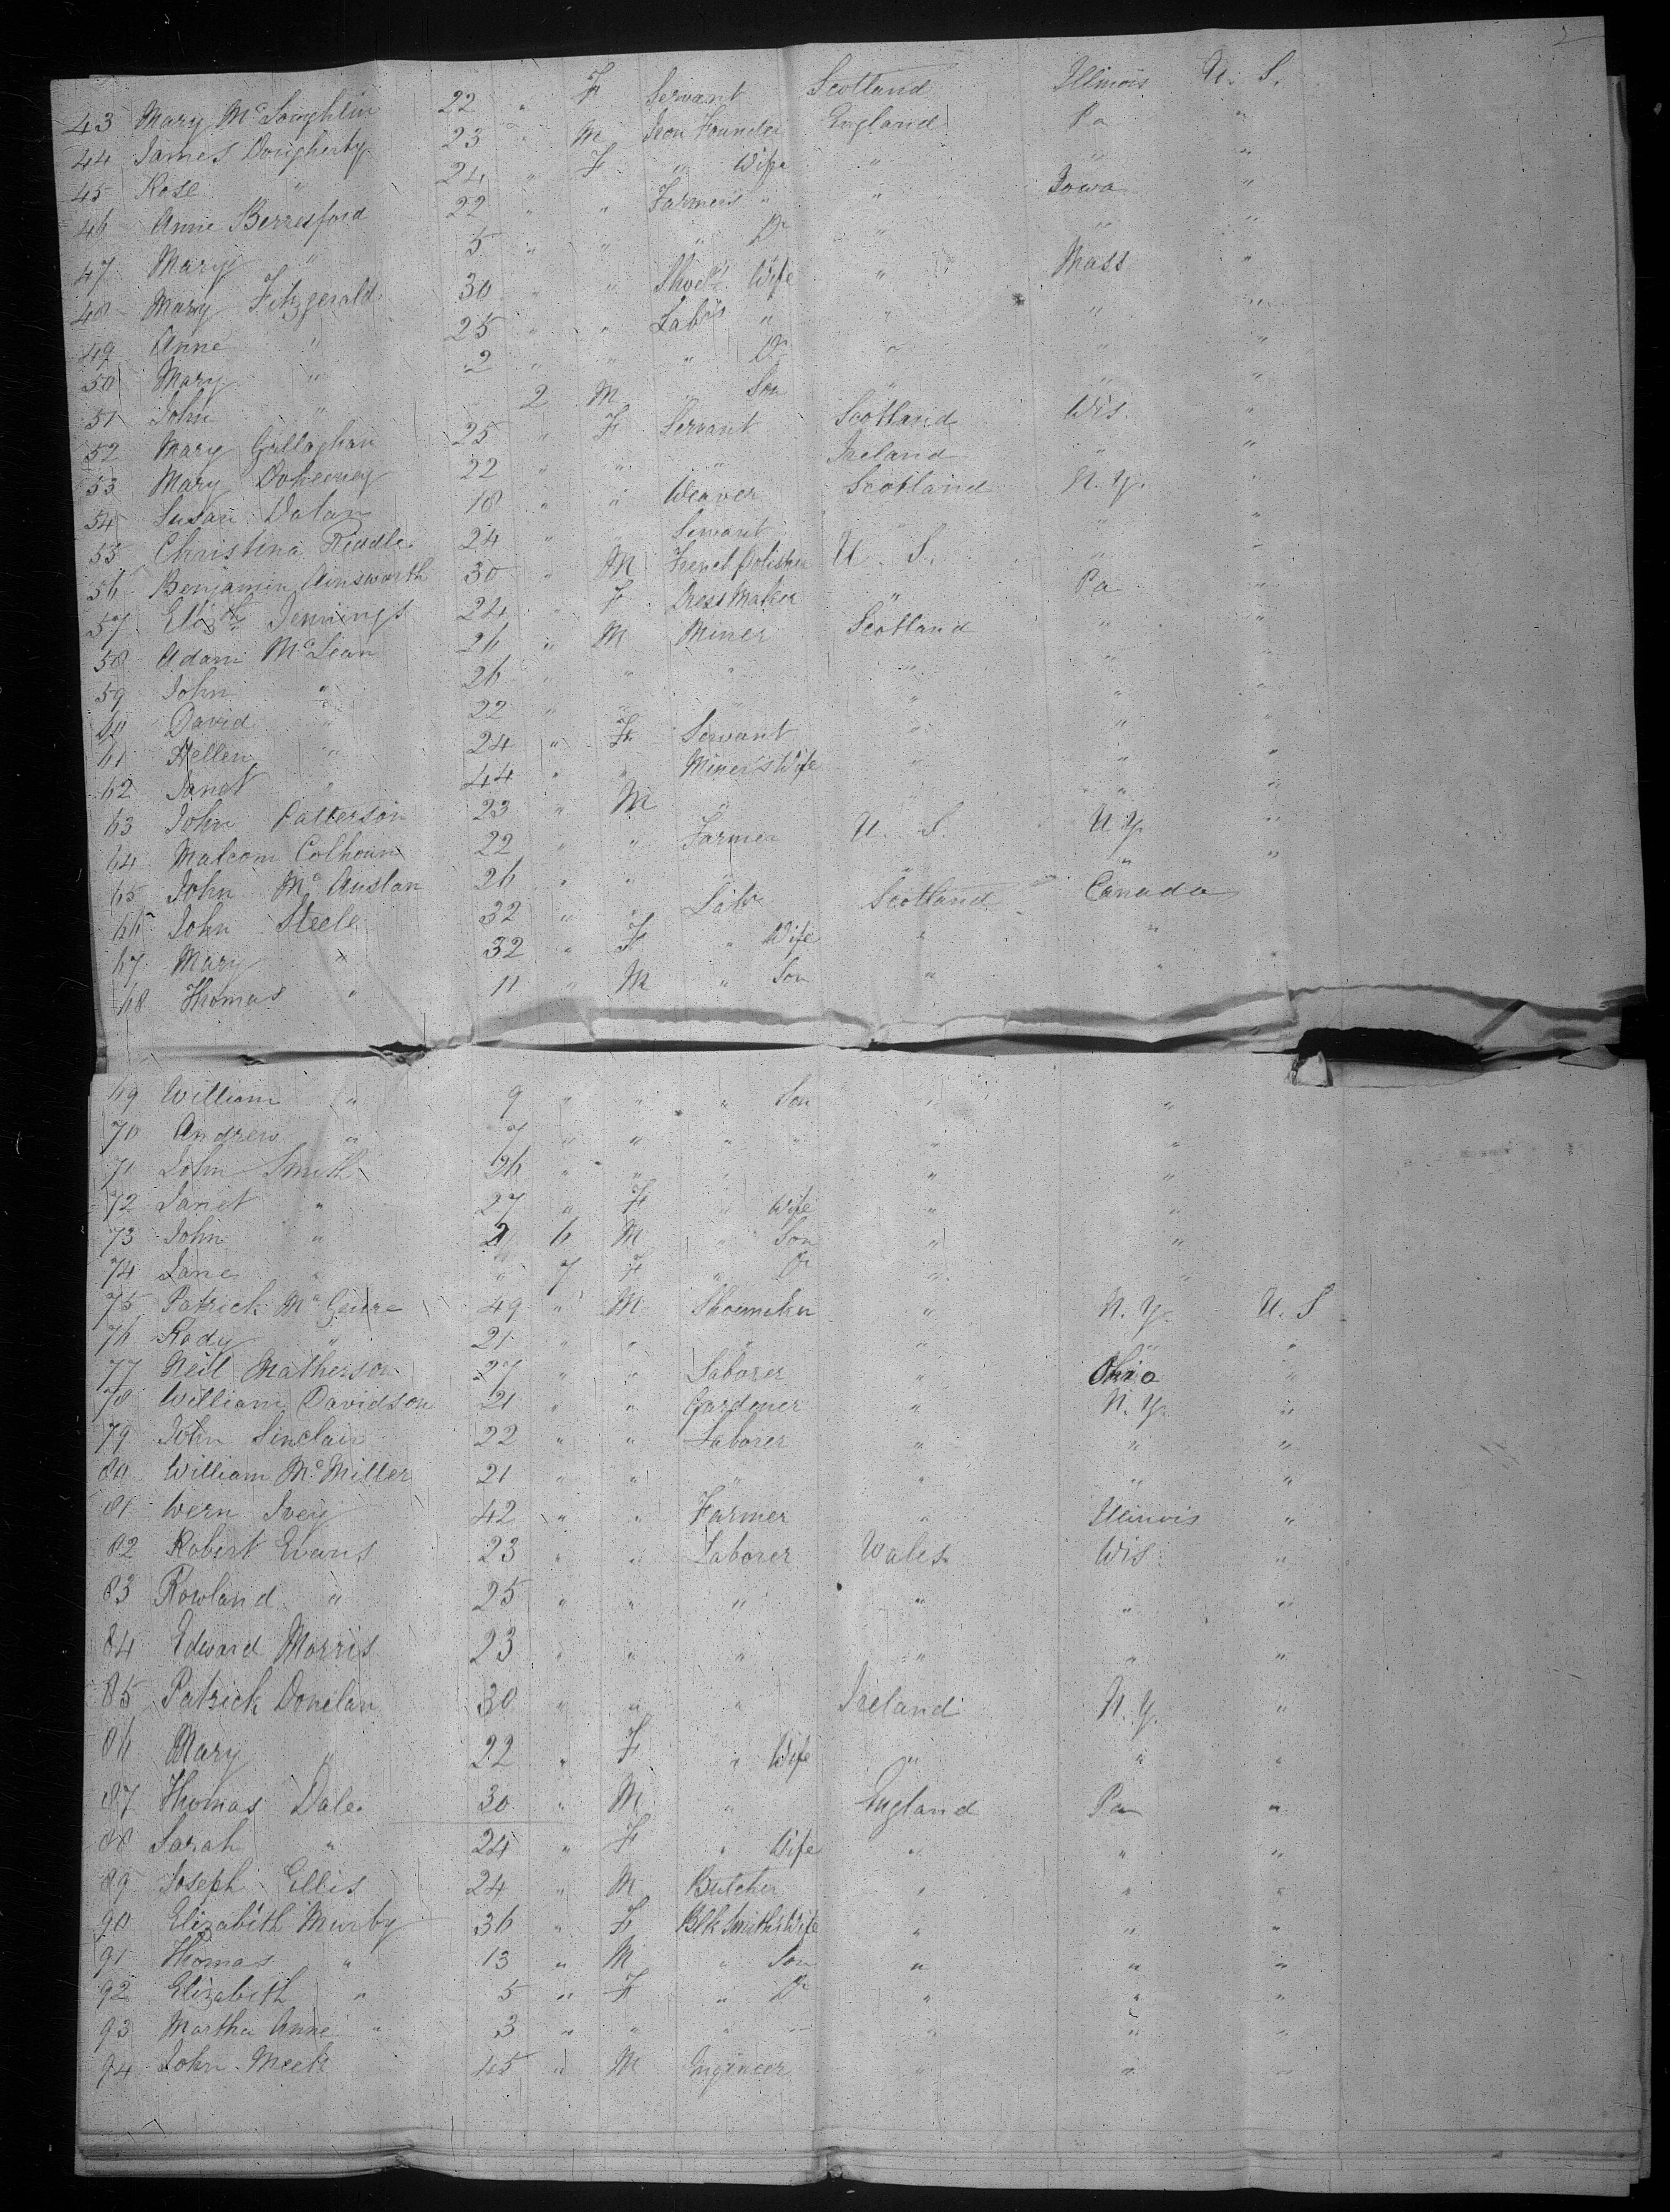 2
43 Mary McLoughlin 22 " F Servant Scotland Illinois U. S.
44 James Dougherty 23 " M Iron Founder England Pa "
45 Rose " 24 " F " Wife " " "
46 Anne Berresford 22 " " Farmers " " Iowa "
47 Mary " 5 " " " Dr " " "
48 Mary Fitzgerald 30 " " Shoemr Wife " Mass "
49 Anne " 25 " " Labrs " " " "
50 Mary " 2 " " " Dr " " "
51 John " 2 M " Son " " "
52 Mary Gallaghan 25 " F Servant Scotland Wis "
53 Mary Doheeney 22 " " " Ireland " "
54 Susan Dolan 18 " " Weaver Scotland N. Y. "
55 Christina Riddle 24 " " Servant " " "
56 Benjamin Ainsworth 30 " M Frenct Polisher U. S. " "
57 Elizth Jennings 24 " F Dress Maker " Pa "
58 Adam McLean 26 " M Miner Scotland " "
59 John " 26 " " " " " "
60 David " 22 " " " " " "
61 Hellen " 24 " F Servant " " "
62 Janet " 44 " " Miner's Wife " " "
63 John Patterson 23 " M " " " "
64 Malcom Colhoun 22 " " Farmer U. S. N Y. "
65 John McAuslan 26 " " " " " "
66 John Steele 32 " " Labr Scotland Canada
67 Mary " 32 " F " Wife " "
68 Thomas " 11 " M " Son " "
69 William " 9 " " " Son " "
70 Andrew " 7 " " " " " "
71 John Smith 26 " " " " "
72 Janet " 27 " F " Wife " "
73 John " 2 6 M " Son " "
74 Jane " " 7 F " Dr " "
75 Patrick McGuire 49 " M Shoemaker " N. Y. U. S
76 Rody " 21 " " " " " "
77 Neil Matherson 27 " " Laborer " Ohio "
78 William Davidson 21 " " Gardener " N. Y. "
79 John Sinclair 22 " " Laborer " " "
80 William McMiller 21 " " " " " "
81 Wern Ivey 42 " " Farmer " Illinois "
82 Robert Evans 23 " " Laborer Wales Wis "
83 Rowland " 25 " " " " " "
84 Edward Morris 23 " " " " " "
85 Patrick Donelan 30 " " " Ireland N. Y. "
86 Mary " 22 " F " Wife " " "
87 Thomas Dale 30 " M " England Pa "
88 Sarah " 24 " F " Wife " " "
89 Joseph Ellis 24 " M Butcher " " "
90 Elizabeth Murby 36 " F Blk Smiths Wife " " "
91 Thomas " 13 " M " Son " " "
92 Elizabeth " 5 " F " Dr " " "
93 Martha Anne " 3 " " " " " " "
94 John Meek 45 " M Engineer " " "